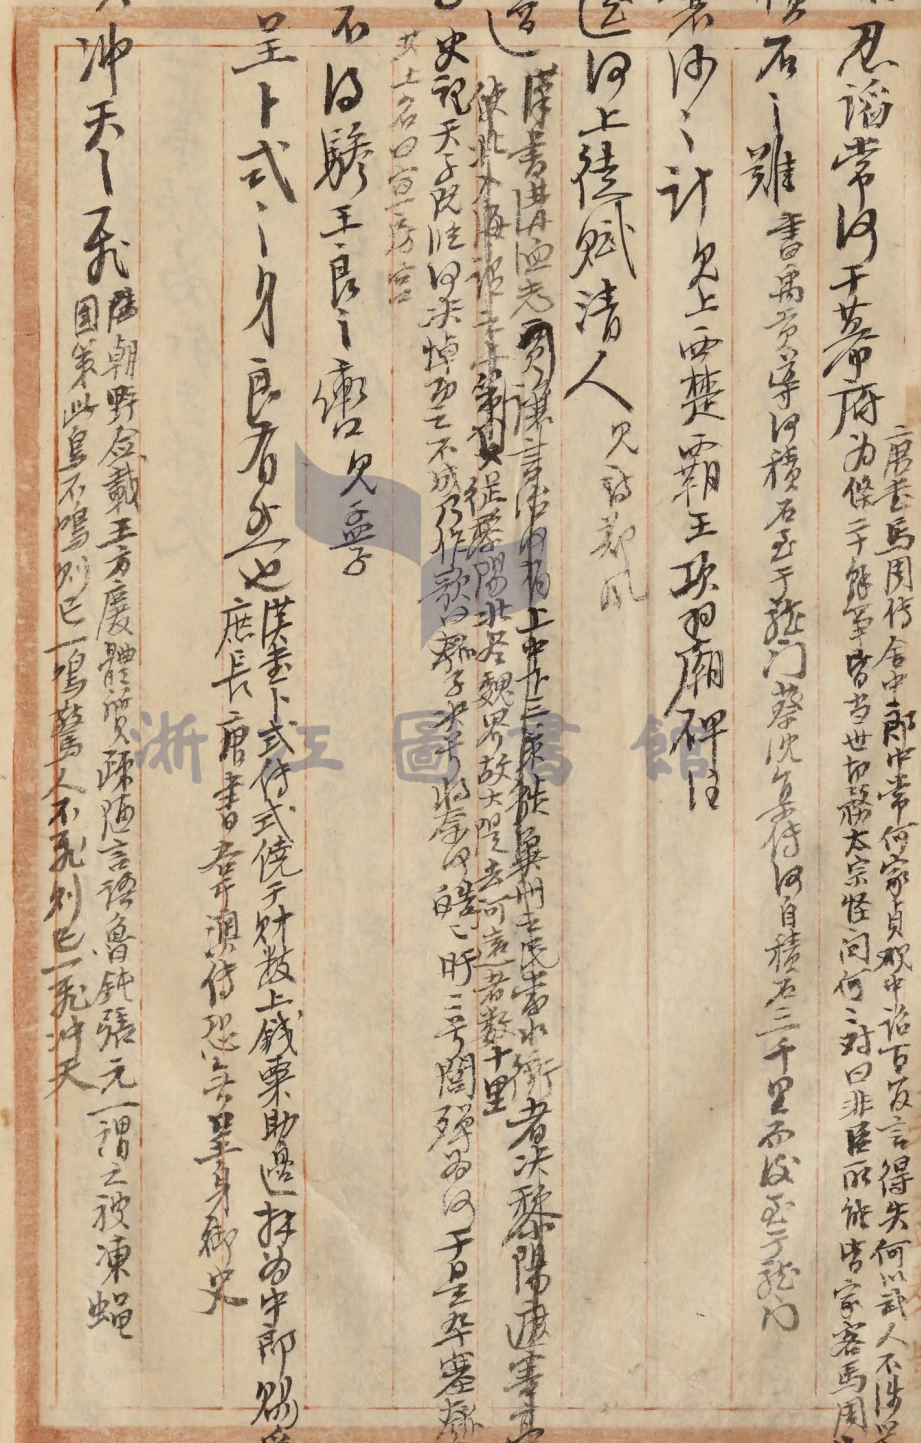 忍謟常何于幕府
唐書馬周傳舍中郎中常何家貞觀中詔百官言得失何以武人不涉學
為條二十餘事皆當世切務太宗怪問何〻對曰非臣所能皆家客馬周
石之難書禹貢導河積石至于龍门蔡沈集傳河自積石三千里而後至于龍门
沙之計見上西楚霸王項羽廟碑注
河上徒賦清人見詩鄭風
漢書溝洫志賈讓言治河有上中下三策徙冀州之民當水衝者決黎陽遮害亭
使北入海從黎陽北盡魏界故大隄去河遠者數十里
史記天子既臨河決悼功之不成乃作歌曰瓠子決兮將奈何皓〻旰〻兮閭殫為河于是卒塞瓠
其上名曰宣房宮
不得驂王良之轡見孟子
呈卜式之身良有以也
漢書卜式傳式饒于財數上錢粟助邊拜為中郎賜爵
庶長唐書韋澳傳恐無呈身御史
冲天之飛
唐朝野僉載王方慶體質疎陋言語魯鈍張元一謂之被凍蝇
國策此鳥不鳴則已一鳴驚人不飛則已一飛冲天
浙江圖書館